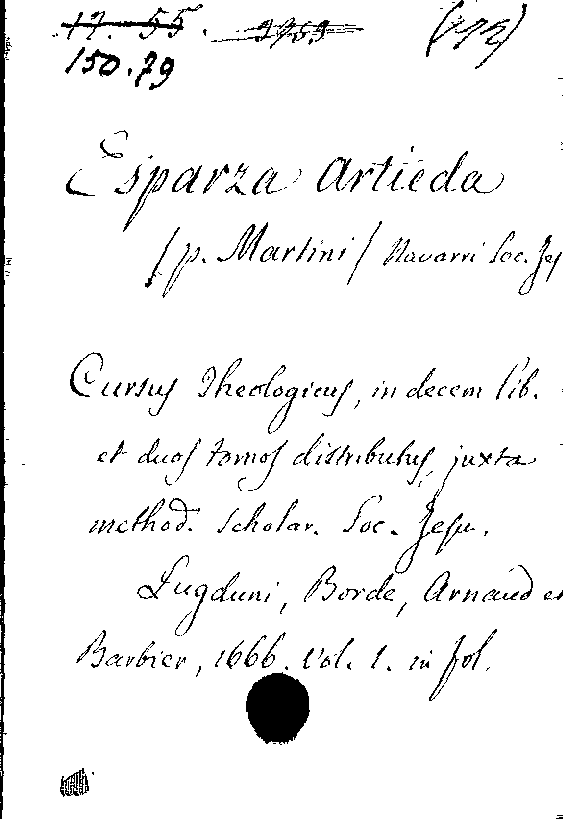 17. 55.
150.79
Esparza Artieda
/p. Martini/ Navarri Soc. Jes
Cursus Theologicus, in decem lib.
et duos tomos distributus, juxta
method. scholar. Soc. Jesu.
Lugduni, Borde, Arnaud et
Barbier, 1666. Vol. 1. in fol.